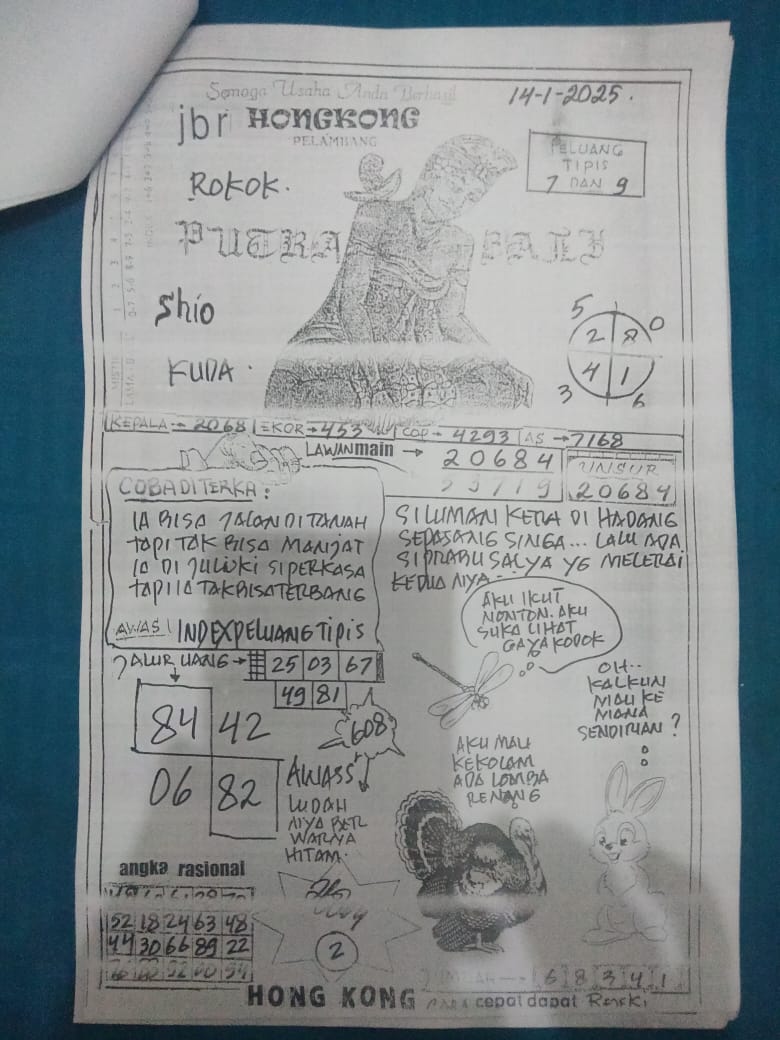 Semoga Usaha Anda Berhasil
14-1-2025.
jbr HONGKONG
PELAMBANG
PELUANG
TIPIS
7 DAN 9
ROKOK.
PUTRA BALI
Shio
KUDA.
5
2 8 0
4 1
3 6
KEPALA → 2068 EKOR → 453 COP → 4293 AS → 7168
LAWANmain → 20684
53719
UNSUR
20684
COBA DITERKA :
IA BISA JALAN DI TANAH
TAPI TAK BISA MANJAT
IA DI JULUKI SI PERKASA
TAPI IA TAK BISA TERBANG
AWAS! INDEX PELUANG TIPIS
SILUMAN KERA DI HADANG
SEPASANG SINGA... LALU ADA
SI PRABU SALYA YG MELERAI
KEDUA NYA
AKU IKUT
NONTON. AKU
SUKA LIHAT
GAYA KODOK
JALUR UANG → 25 03 67
49 81
84 42
06 82
608
OH..
KALKUN
MAU KE
MANA
SENDIRIAN ?
AKU MAU
KEKOLAM
ADA LOMBA
RENANG
AWASS
LUDAH
NYA BER
WARNA
HITAM.
angka rasional
52 18 24 63 48
44 30 66 89 22
2
6 8 3 4 1
HONG KONG cepat dapat Rezeki